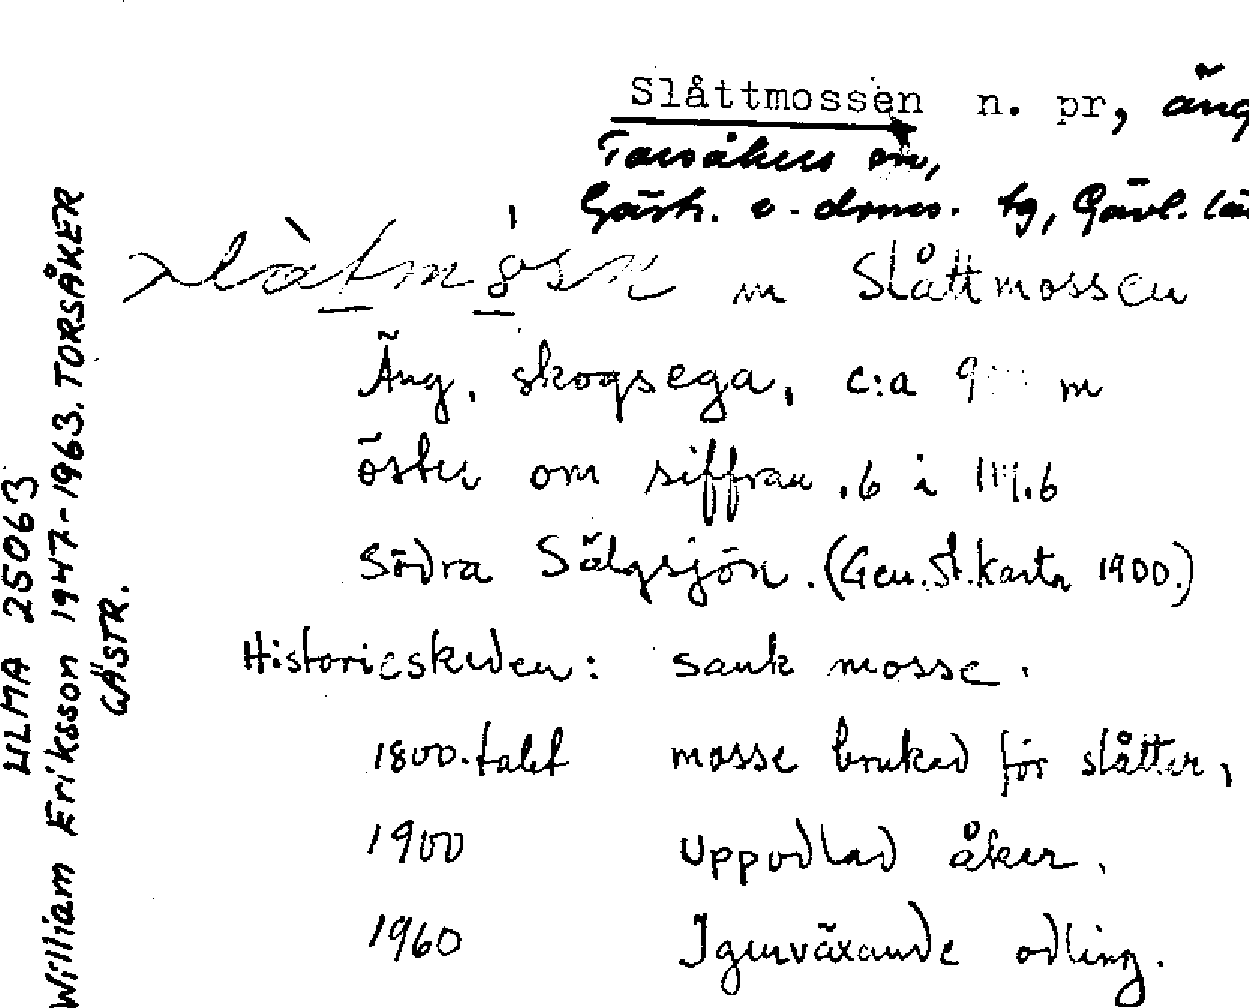 Slåttmossen n. pr, äng
Torsåkers sn,
Gästr. ö. doms. tg, Gävl. lä
m Slåttmossen
Äng, skogsega, c:a m
öster om siffran .6 i .6
Södra Sälgsjön. (Gen.St.Karta 1900.)
Historieskeden: sank mosse.
1800-talet mosse brukad för slåtter,
1900 Uppodlad åker.
1960 Igenväxande odling.
ULMA 25063
William Eriksson 1947-1963. TORSÅKER
GÄSTR.